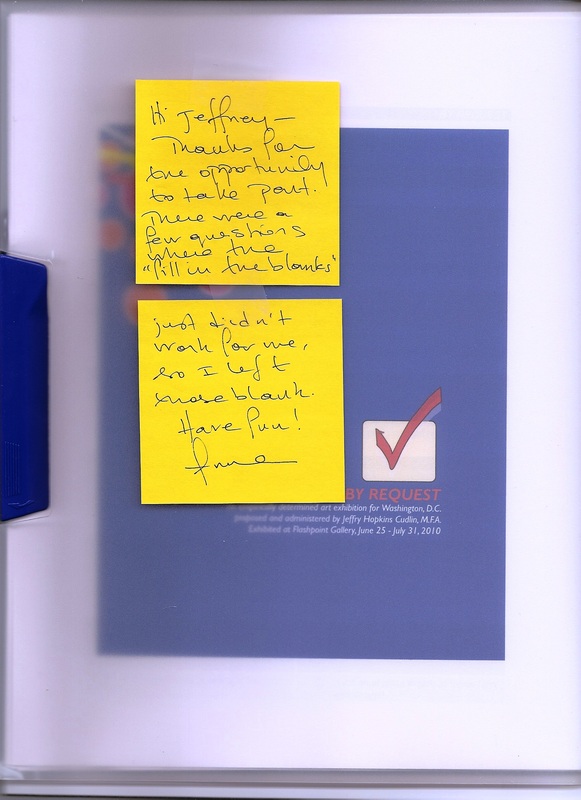 Hi Jeffrey—
Thanks for
the opportunity
to take part.
There were a
few questions
where the
"fill in the blanks"
just didn't
work for me,
so I left
those blank.
Have fun!
Anne
BY REQUEST
determined art exhibition for Washington, D.C.
prepared and administered by Jeffry Hopkins Cudlin, M.F.A.
Exhibited at Flashpoint Gallery, June 25 - July 31, 2010